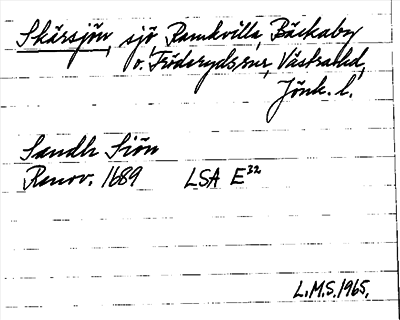 Skärsjön, sjö Ramkvilla, Bäckaby
o. Fröderyds snr, Västra hd,
Jönk. l.
Sandh Siön
Renov. 1689 LSA E32
L.M.S. 1965.